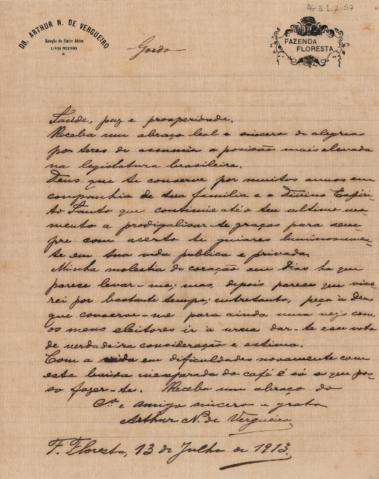 DR. ARTHUR N. DE VERGUEIRO
FAZENDA
FLORESTA
Gordo
Saúde, paz e prosperidade.
Receba um abraço leal e sincero de alegria
por teres de assumir a posição mais elevada
na legislatura brasileira.
Deus que te conserve por muitos annos em
companhia de tua familia e o Divino Espiri-
to Santo que continue até o teu ultimo mo-
mento a prodigalisar-te graças para sem-
pre com acerto te guiares luminosamen-
te em sua vida publica e privada.
Minha molestia do coração em dias ha que
parece levar-me; mas, depois parece que vive-
rei por bastante tempo; entretanto, peça a Deus
que conserve-me para ainda uma vez, com
os meus eleitores ir à urna dar-te seu voto
de verdadeira consideração e estima.
Com a vida em dificuldades novamente com
esta baixa inesperada do café é só o que pos-
so fazer-te. Receba um abraço do
Am.º e amigo sincero e grato
Arthur N. de Vergueiro
F. Floresta, 13 de Julho de 1913.